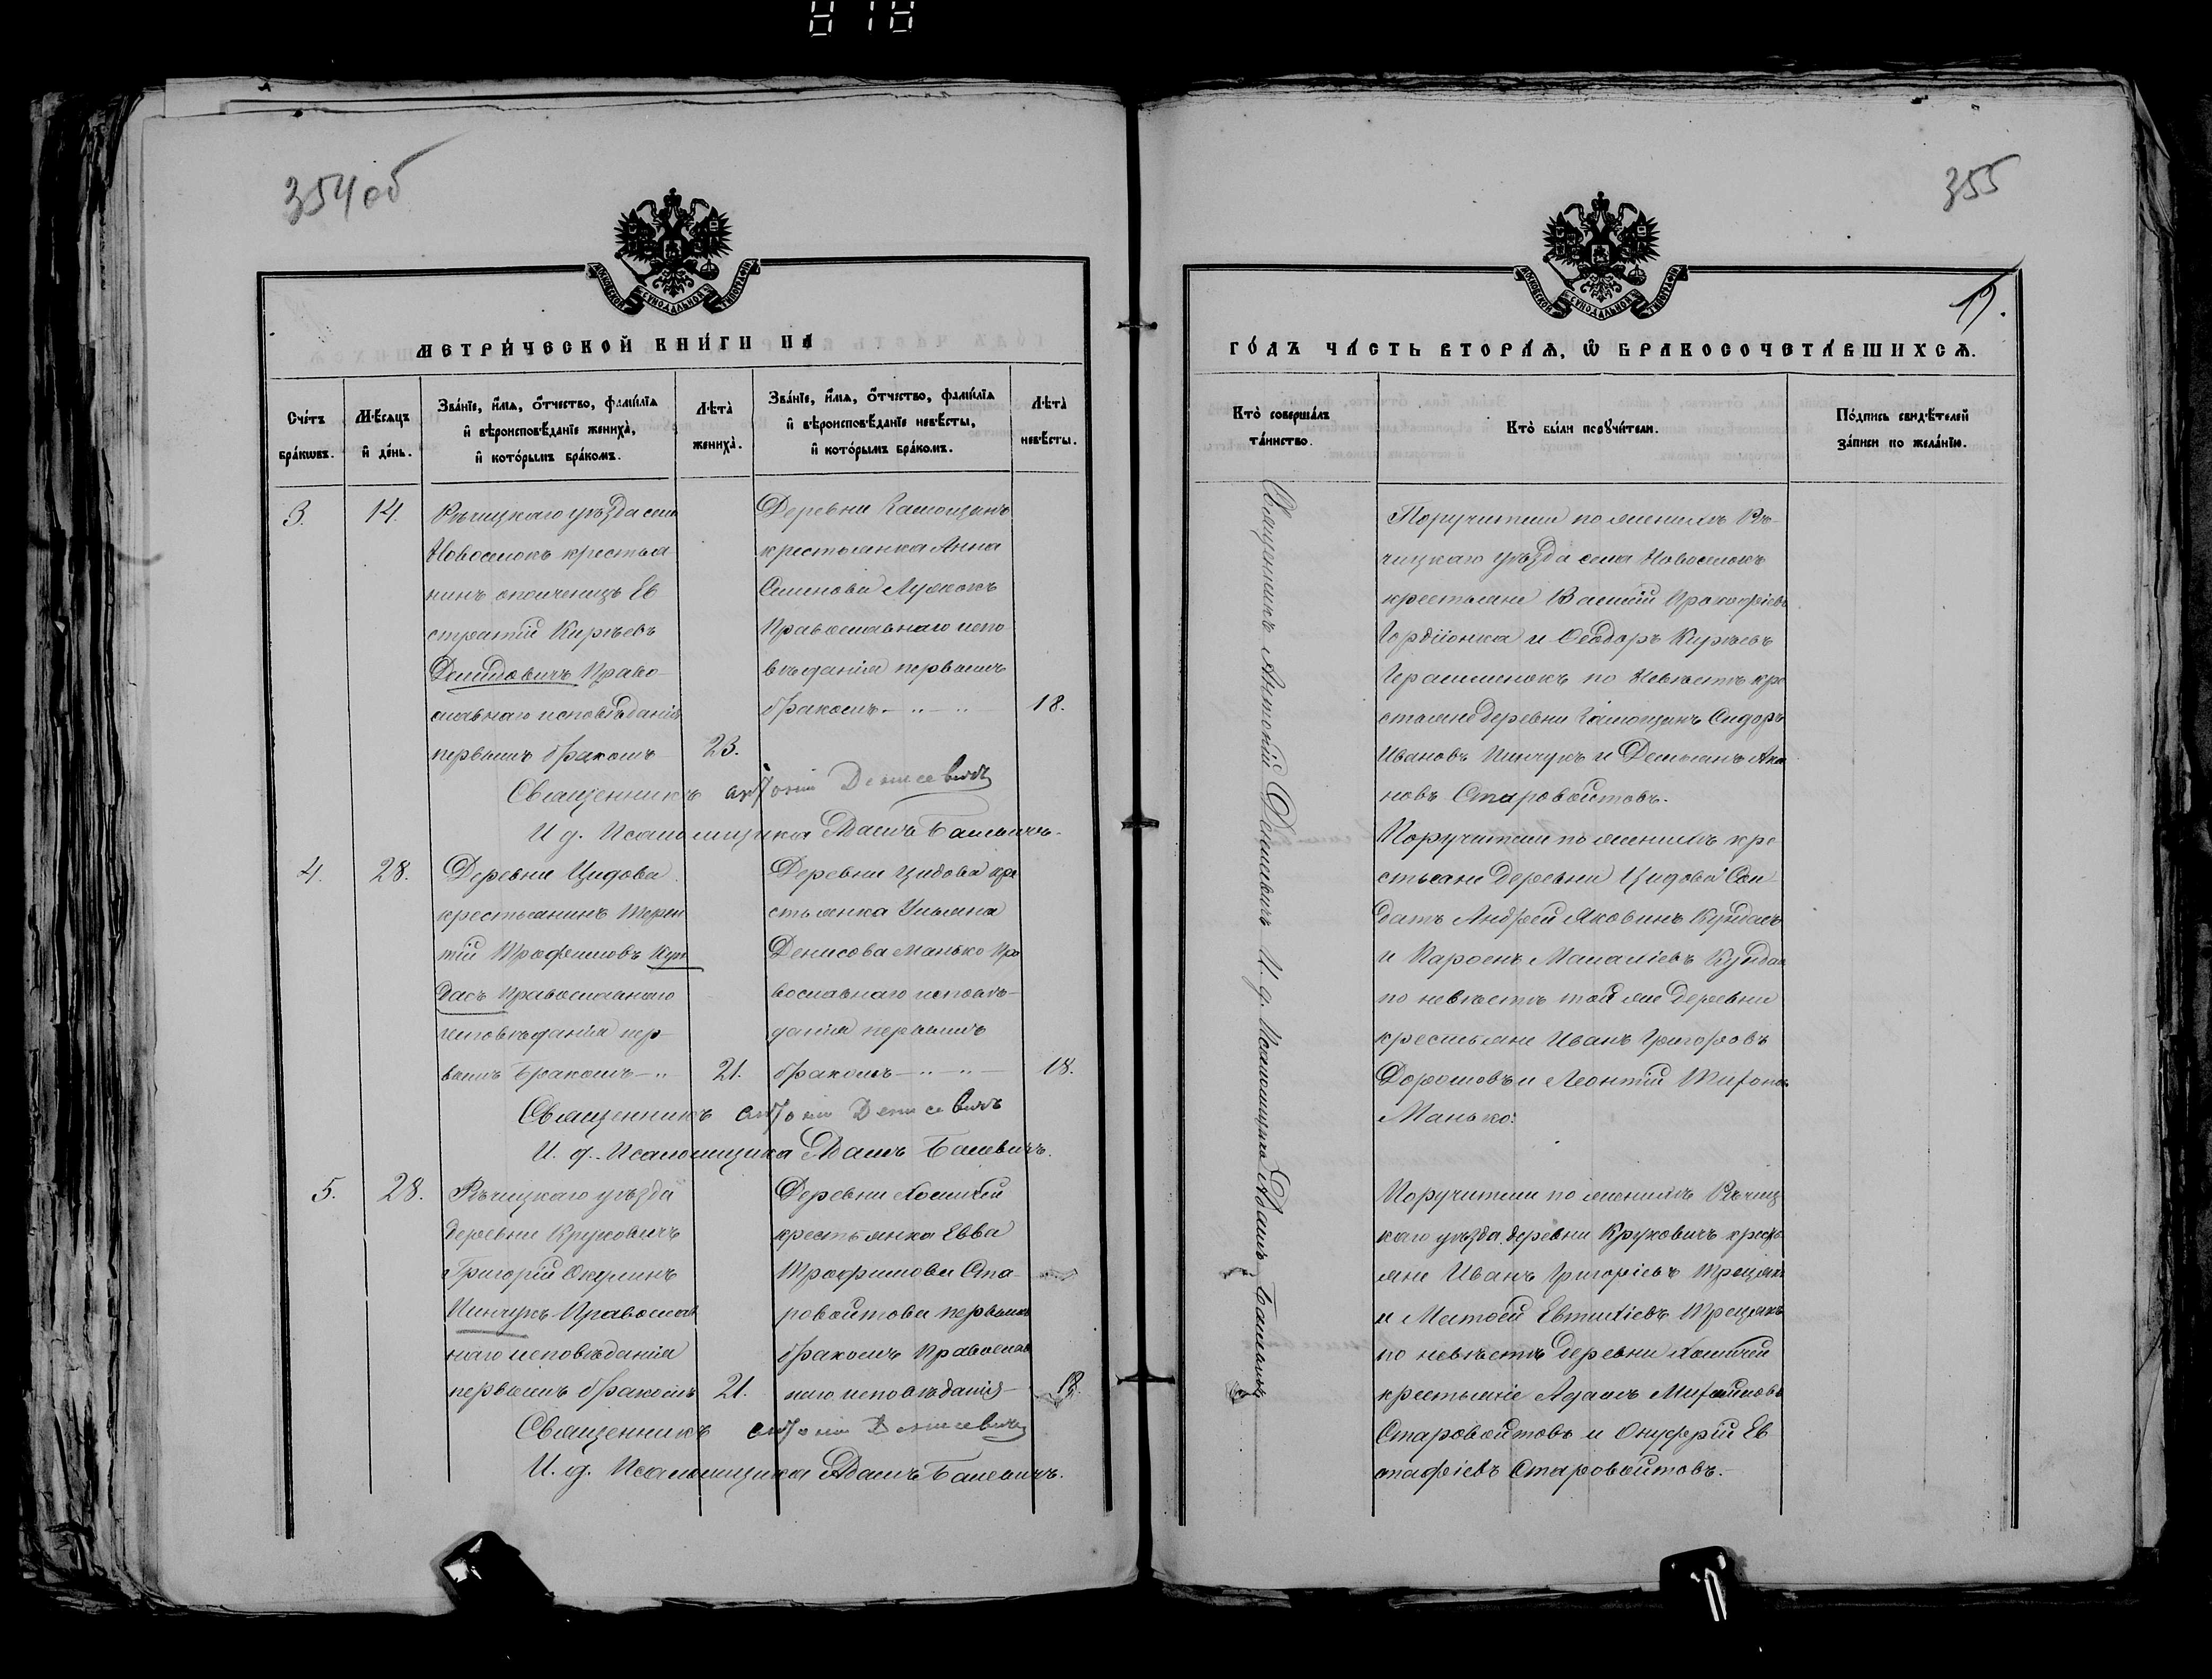 354 об
МЕТРИ́ЧЕСКОЙ КНИ́ГИ НА
Сче́тъ бра́кѡвъ.
Мѣ́сяцъ и҆ де́нь.
Зва́нїе, и҆́мѧ, ѻ҆́тчество, фамі́лїѧ и҆ вѣроисповѣ́данїе жениха̀, и҆ кото́рымъ бра́комъ.
Лѣ́та̀ жениха̀.
Зва́нїе, и҆́мѧ, ѻ҆́тчество, фамі́лїѧ и҆ вѣроисповѣ́данїе невѣ́сты, и҆ кото́рымъ бра́комъ.
Лѣ́та̀ невѣ́сты.
3.
14.
Рѣчицкаго уѣзда села
Новоселокъ крестья
нинъ ополченецъ Ев
стратій Кирѣевъ
Демидовичъ Право-
славнаго исповѣданія
первымъ бракомъ
23.
Деревни
крестьянка Анна
Семенова
Православнаго испо-
вѣданія первымъ
бракомъ
18.
Священникъ Антоній Денисевичъ
И. д. Псаломщика Адамъ Балевичъ.
4.
28.
Деревни Цидова
крестьянинъ Терен
тій Трофимовъ Кун
дасъ Православнаго
исповѣданія пер-
вымъ бракомъ
21.
Деревни Цидова кре
стьянка Ульяна
Денисова Манько Пра
вославнаго исповѣ-
данія первымъ
бракомъ
18.
Священникъ Антоній Денисевичъ
И. д. Псаломщика Адамъ Балевичъ.
5.
28.
Рѣчицкаго уѣзда
деревни Круковичъ
Григорій
Пинчукъ Православ
наго исповѣданія
первымъ бракомъ
21.
Деревни
крестьянка Евва
Трофимова Ста-
ровойтова первымъ
бракомъ Православ
наго исповѣданія
18.
Священникъ Антоній Денисевичъ
И. д. Псаломщика Адамъ Балевичъ.
355
ГО́ДЪ ЧА́СТЬ ВТОРА́Ѧ, Ѡ҆ БРАКОСОЧЕТА́ВШИХСѦ.
Кто̀ соверша́лъ та́инство.
Кто̀ бы́ли порꙋчи́тели.
По́дпись свидѣ́телей за́писи по жела́нїю.
Священникъ Антоній Денисевичъ И. д. Псаломщика Адамъ Балевичъ
Поручители по женихѣ Рѣ-
чицкаго уѣзда села Новоселокъ
крестьяне Василій Прокофіевъ
и Ѳеодоръ Кирѣевъ
по невѣстѣ кре
стьяне деревни Сидоръ
Ивановъ Пинчукъ и Демьянъ
новъ Старовойтовъ.
Поручители по женихѣ кре
стьяне деревни Цидова Сол
датъ Андрей Яковинъ Кундасъ
и Кундас
по невѣстѣ той же деревни
крестьяне Иванъ Григоровъ
Дорошовъ и Леонтій
Манько.
Поручители по женихѣ Рѣчиц
каго уѣзда деревни Круковичъ кресть
яне Иванъ Григоріевъ Трецякъ
и Евтихіевъ Трецякъ
по невѣстѣ деревни
крестьяне Адамъ
Старовойтовъ и Онуфрій Ев
стафіевъ Старовойтовъ.